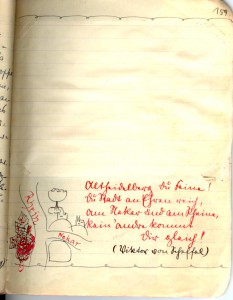 159
Altheidelberg du feine!
Du Stadt an Ehren reich,
am Neckar und am Rheine,
kein' andre kommt
Dir gleich!
(Viktor von Scheffel)
Rhein
Neckar